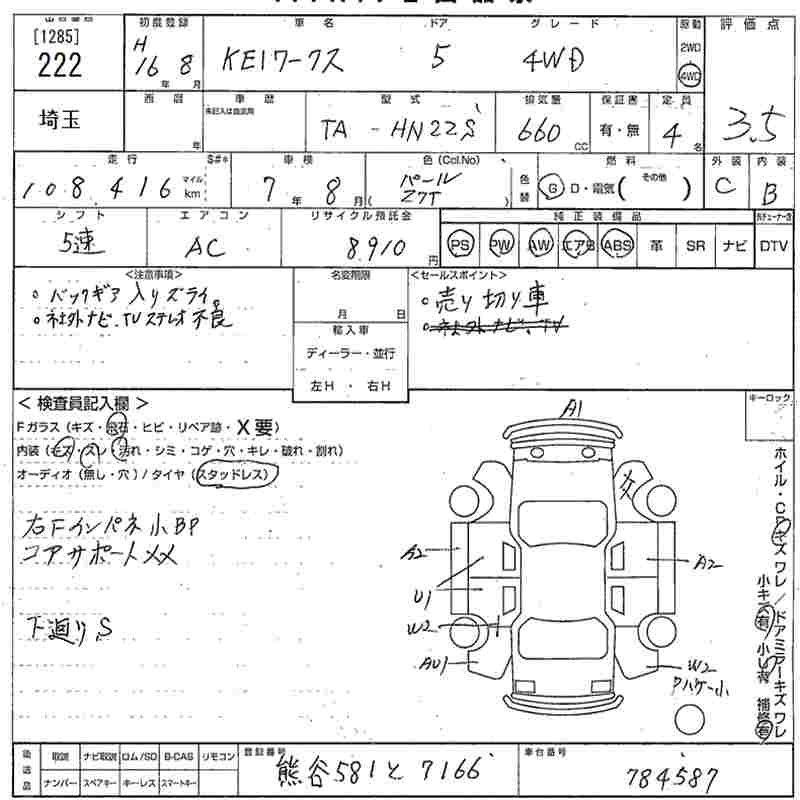 出品番号 初度登録 車名 ドア グレード 駆動 評価点
[1285] 222 H 16年 8月 KEIワークス 5 4WD 2WD 4WD 3.5
埼玉 西暦 年 車歴 未記入は自家用 型式 排気量 保証書 定員
TA - HN22S 660 CC 有・無 4名
走行 S#* 車検 色(Col.No) 燃料 外装 内装
108,416 マイル km 7年 8月 パール Z7T 色替 G D・電気( その他 ) C B
シフト エアコン リサイクル預託金 純正装備品
5速 AC 8,910円 PS PW AW エアB ABS 革 SR ナビ DTV
<注意事項> 名変期限 <セールスポイント>
。バックギア入りズライ。 。売り切り車
。社外ナビ、TVステレオ不良 月 日 。社外ナビ、TV
輸入車
ディーラー・並行
左H ・ 右H
< 検査員記入欄 > キーロック
Fガラス(キズ・飛石・ヒビ・リペア跡・X要)
内装(キズ・スレ・汚れ・シミ・コゲ・穴・キレ・破れ・割れ)
オーディオ(無し・穴)/タイヤ(スタッドレス)
右Fインパネ小BP
コアサポートXX
下廻りS
A1
X
A2 A2
U1
W2
AU1 W2
Pハゲ小
ホイル・CPキズ ワレ/ドアミラーキズ ワレ
小キズ有 小U有 補修有
後送品 取説 ナビ取説 ロム/SD B-CAS リモコン 登録番号 車台番号
ナンバー スペアキー キーレス スマートキー 熊谷581と7166 784587